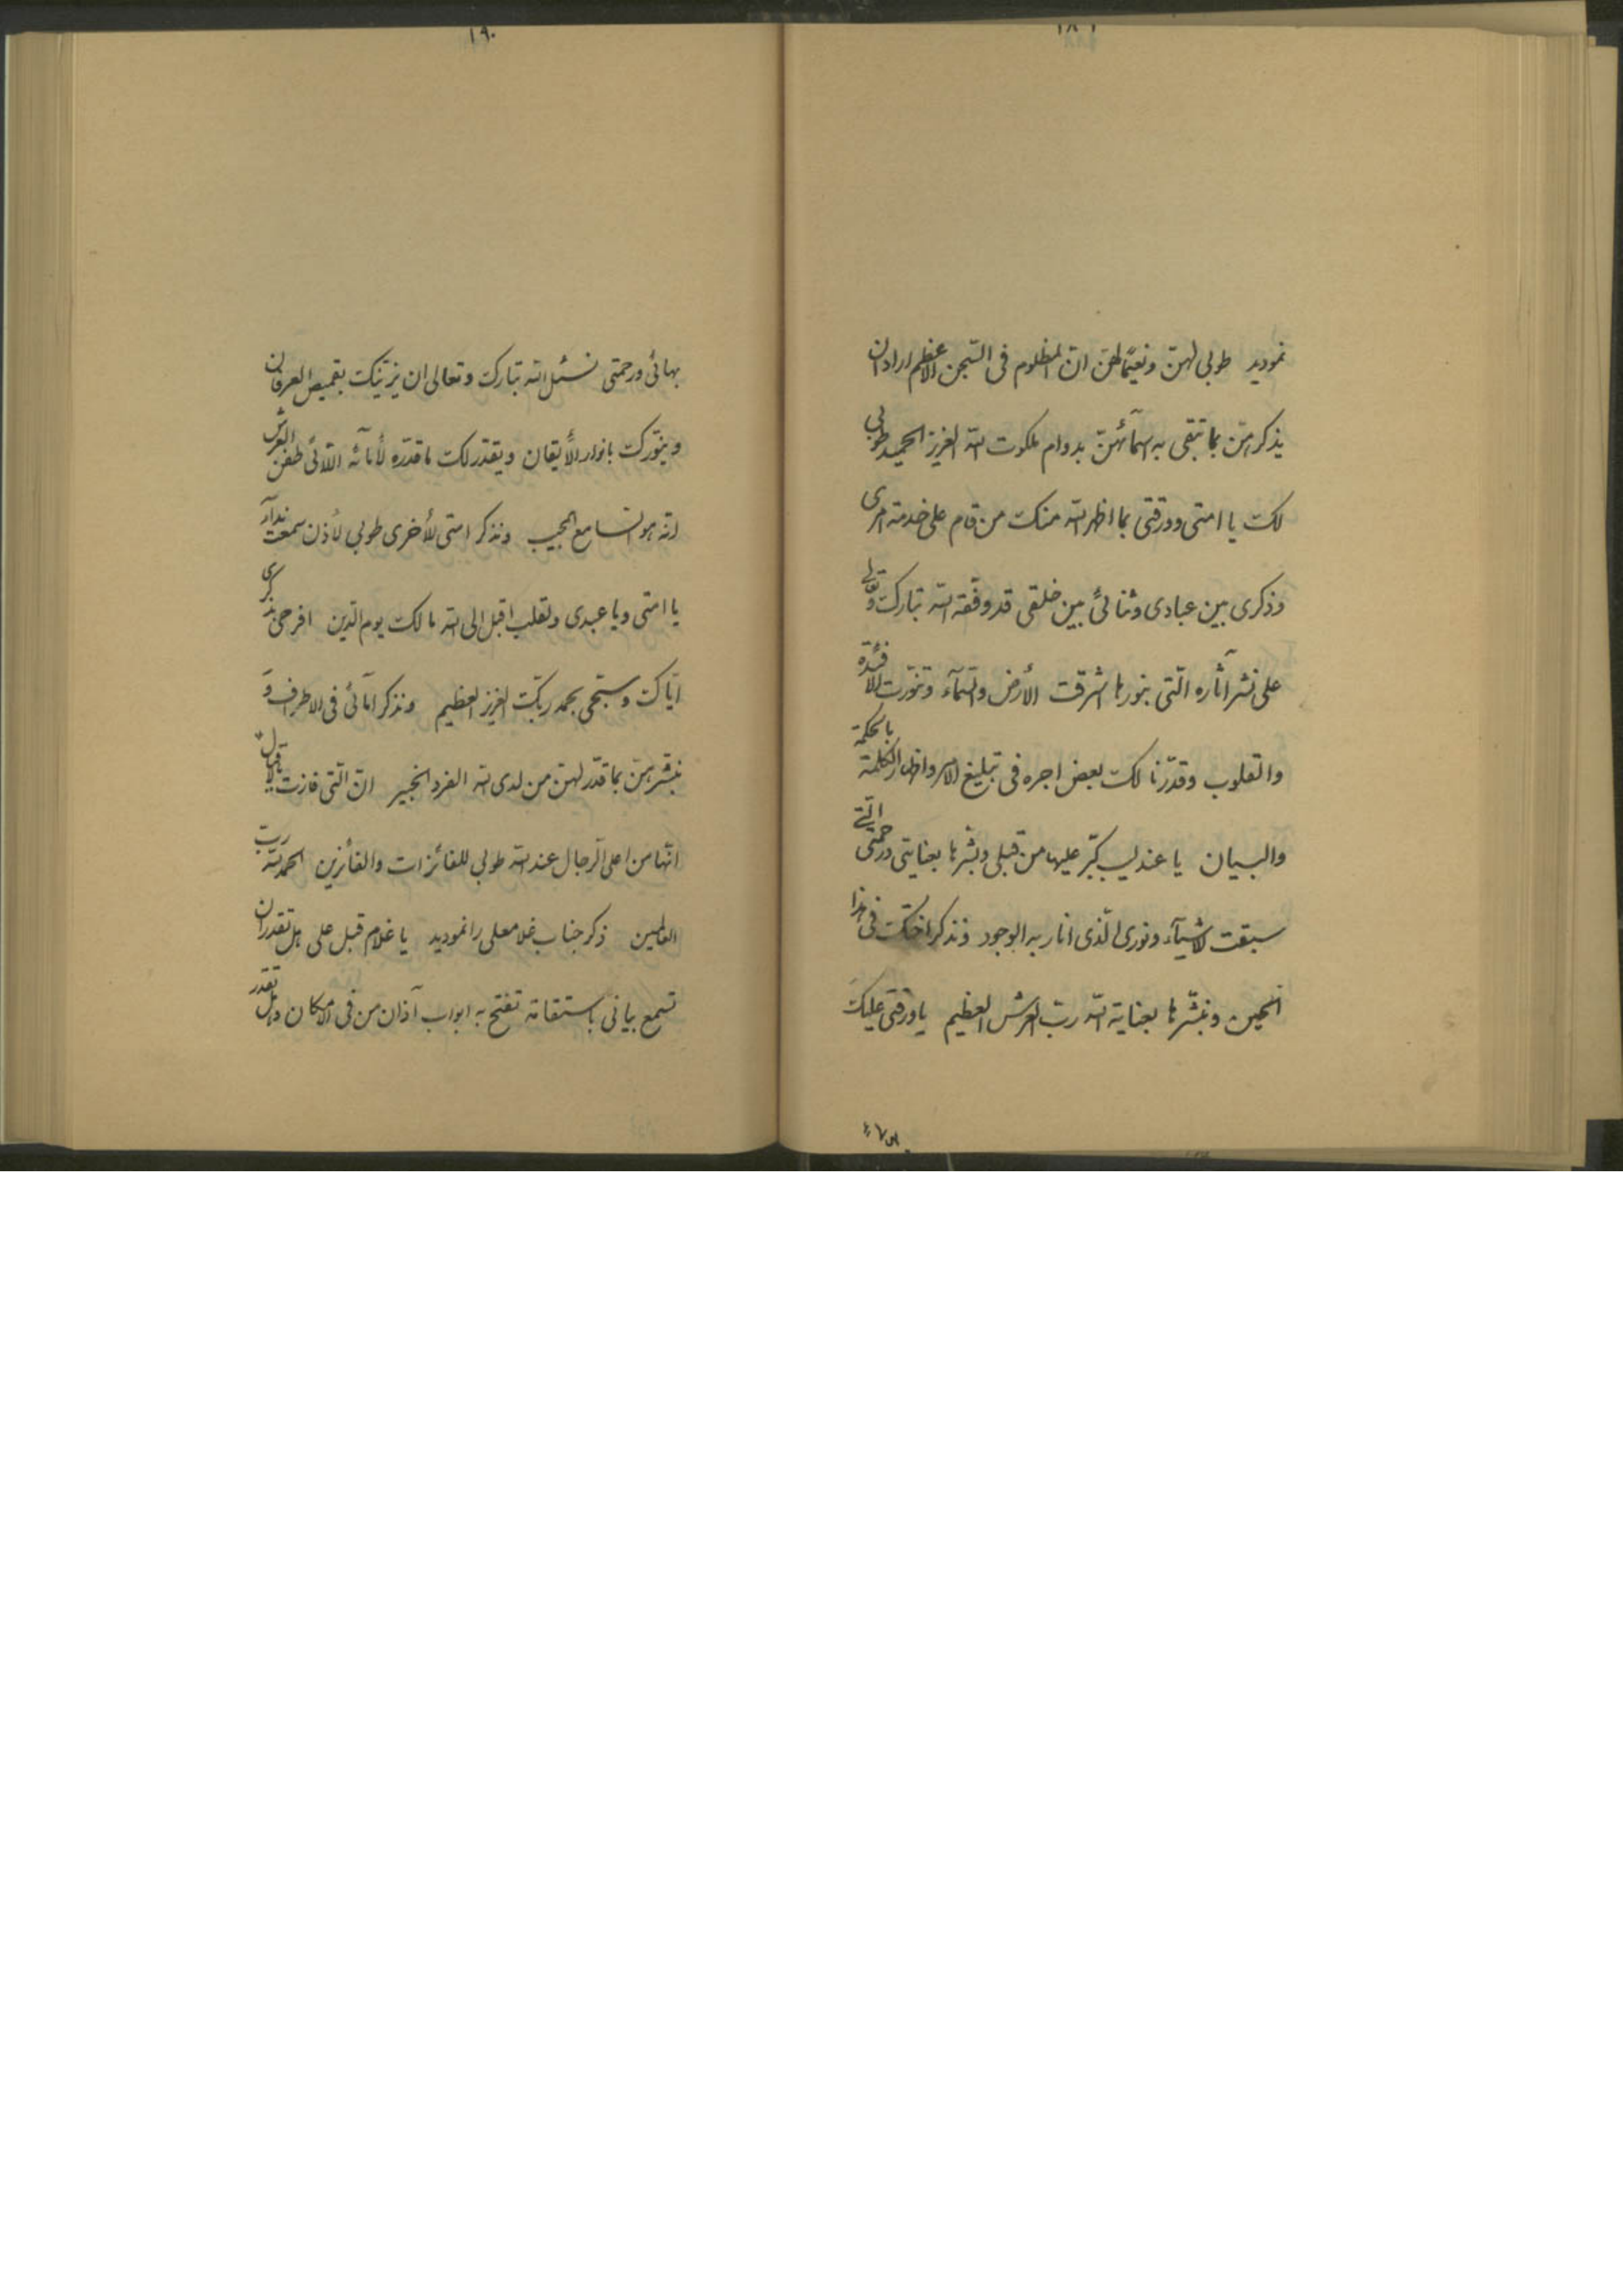 ١٨٩
نمودید طوبی لهنّ ونعیماً لهنّ انّ المظلوم فی السّجن الاعظم اراد ان
یذکرهنّ بما تبقی به اسمآئهنّ بدوام ملکوت الله العزیز الحمید طوبی
لک یا امتی وورقتی بما اظهر الله منک من قام علی خدمة امری
وذکری بین عبادی وثنائی بین خلقی قد وفقه الله تبارک وتعالی
علی نشر آثاره الّتی بنورها اشرقت الأرض والسّمآء وتنوّرت الافئدة
والقلوب وقدّرنا لک بعض اجره فی تبلیغ الامر واظهار الکلمة بالحکمة
والبیان یا عندلیب کبّر علیها من قبلی وبشّرها بعنایتی ورحمتی الّتی
سبقت الاشیآء ونوری الّذی انار به الوجود ونذکر اختک فی هذا
الحین ونبشّرها بعنایة الله ربّ العرش العظیم یا ورقتی علیک
١٩٠
بهائی ورحمتی نسئل الله تبارک وتعالی ان یزیّنک بقمیص العرفان
وینوّرک بانوار الأیقان ویقدّر لک ما قدّره لأمائه اللّائی طفن العرش
انّه هو السّامع المجیب ونذکر امتی الأخری طوبی لأذن سمعت ندآء
یا امتی ویا عبدی ولقلب اقبل الی الله مالک یوم الدّین افرحی بذکری
ایّاک وسبّحی بحمد ربّک العزیز العظیم ونذکر امآئی فی الاطراف و
نبشّرهنّ بما قدّر لهنّ من لدی الله الفرد الخبیر انّ الّتی فازت بالاقبال
انّها من اعلی الرّجال عند الله طوبی للفائزات والفائزین الحمد لله ربّ
العالمین ذکر جناب غلامعلی را نمودید یا غلام قبل علی هل تقدر ان
تسمع بیانی باستقامة تفتح به ابواب آذان من فی الامکان وهل تقدر